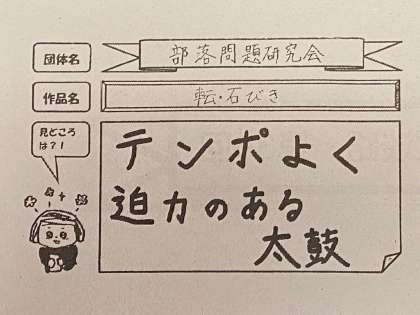 団体名
部落問題研究会
作品名
転・石びき
見どころ
は？！
テンポよく
迫力のある
太鼓